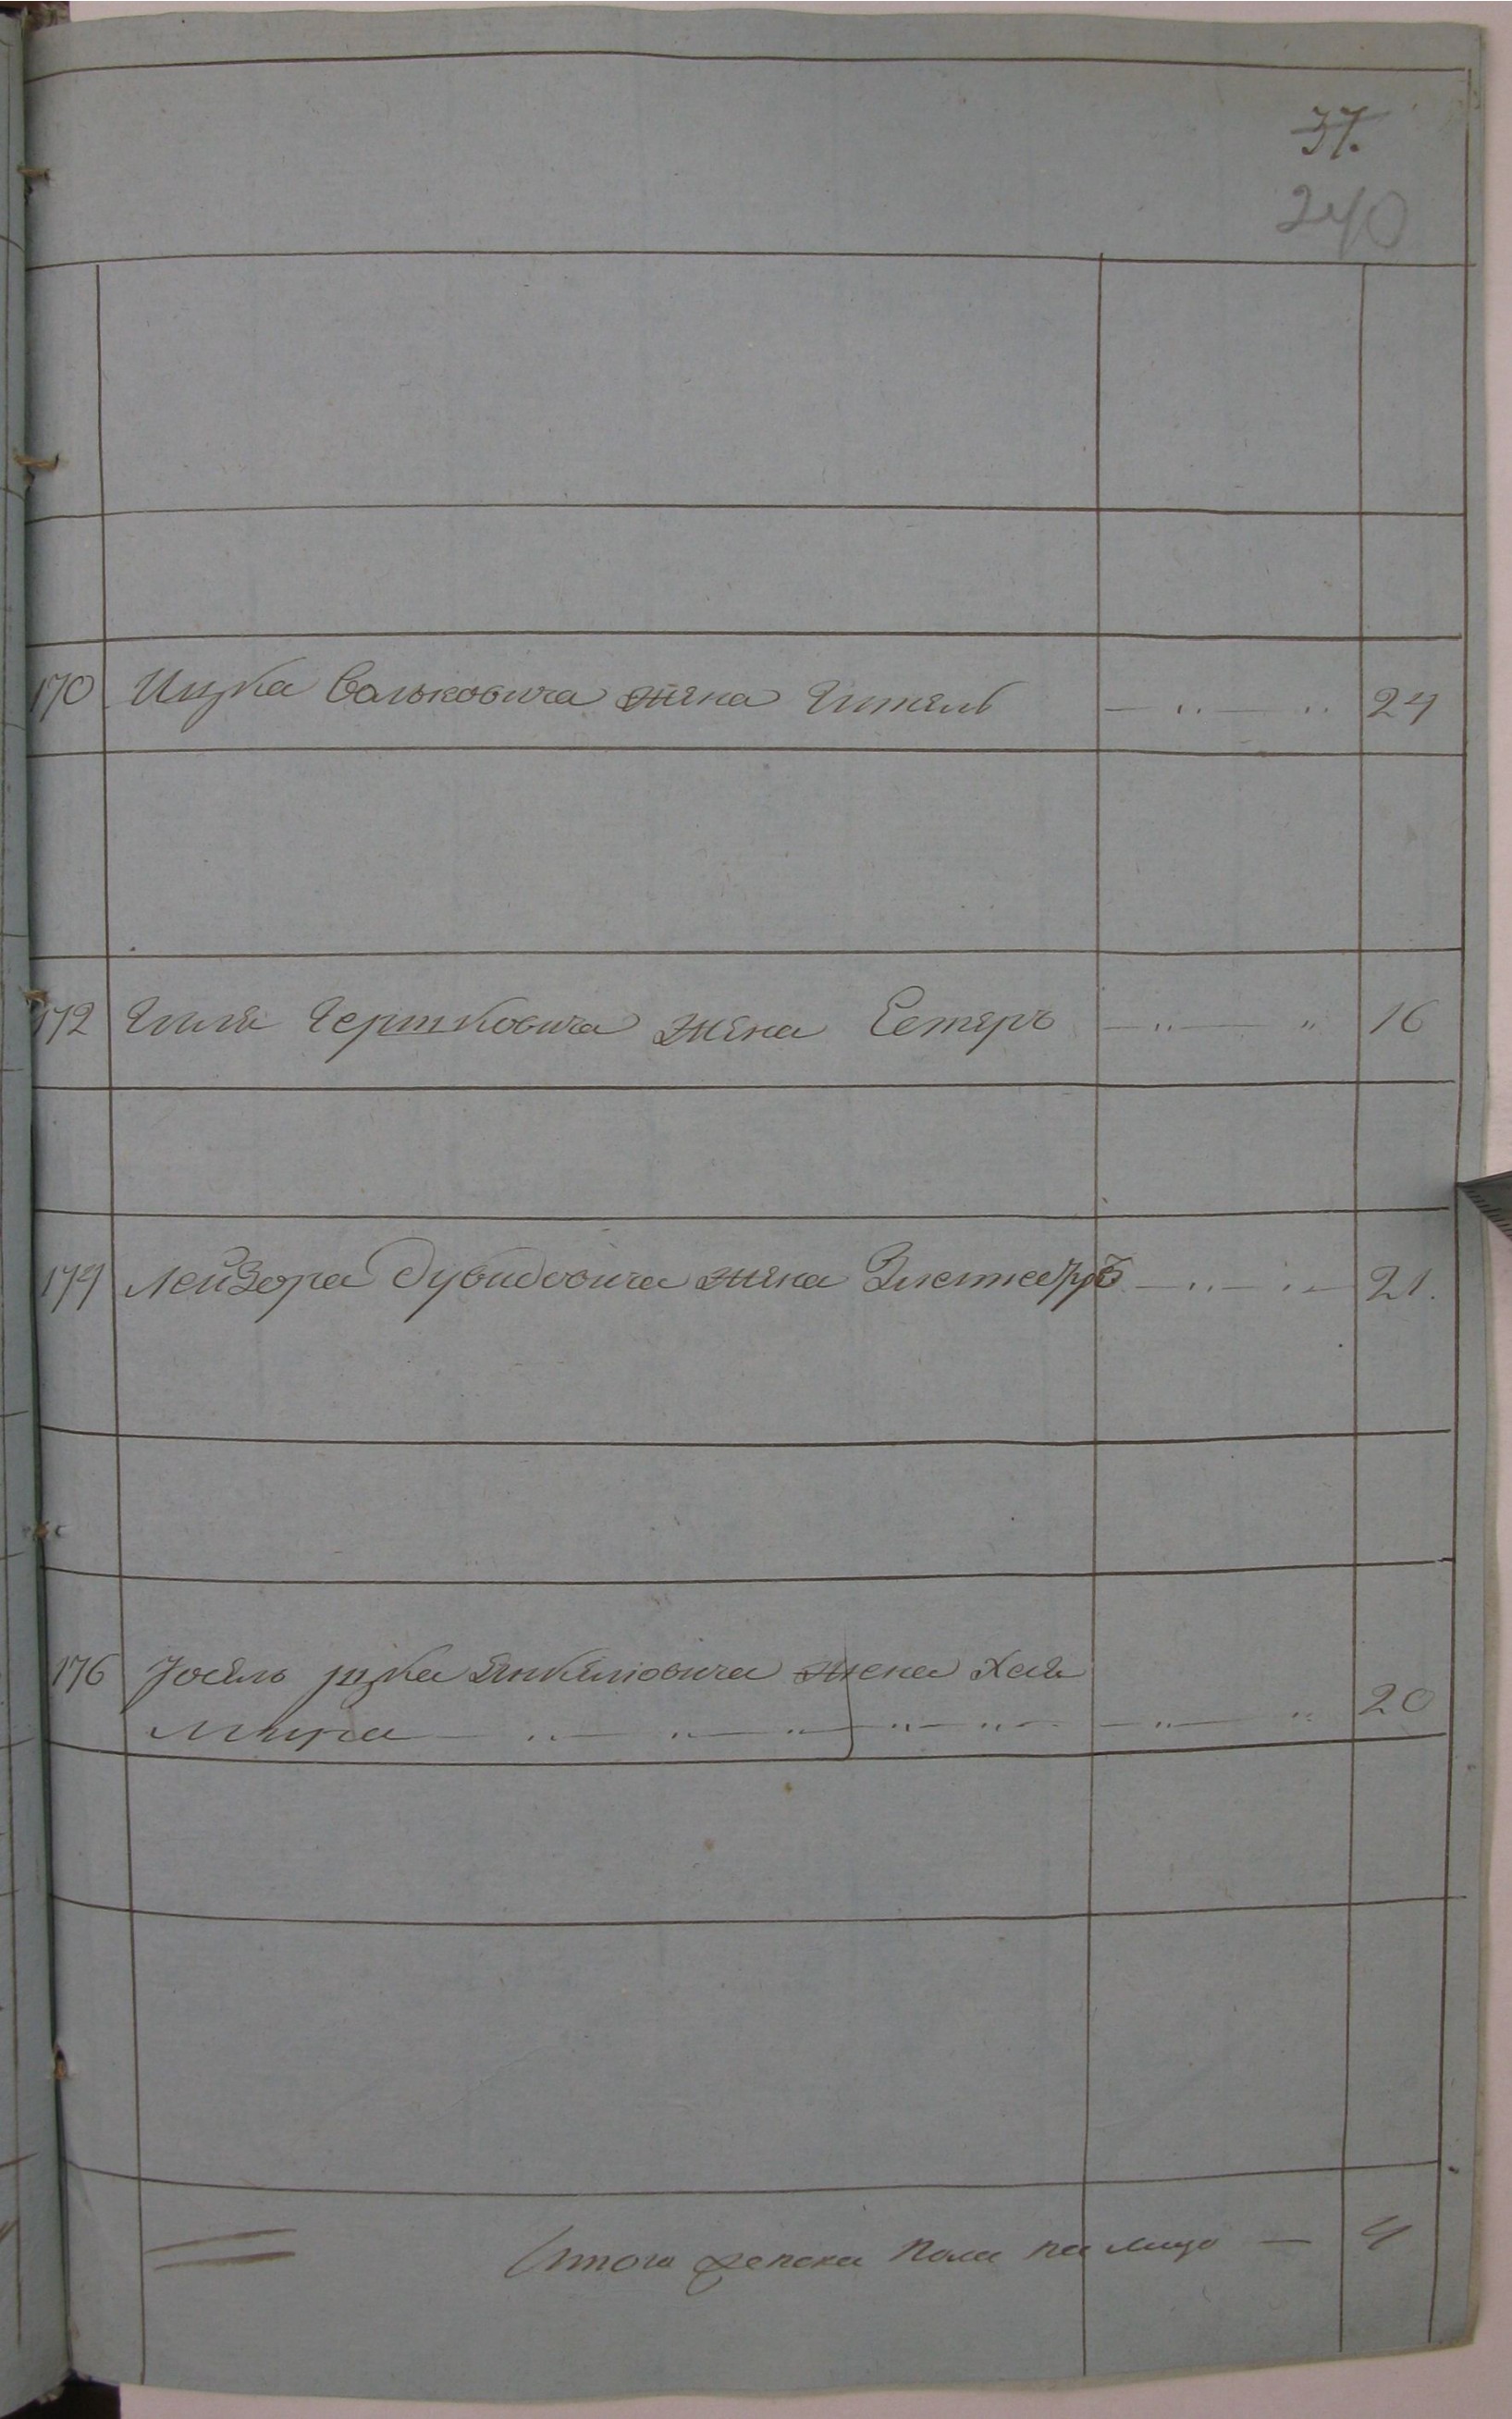 37.
240
170 Ицка Вольковича жена Гитель — „ — „ 24
172 Гиля Гершковича жена Естеръ — „ — „ 16
174 Лейзора Дувидовича жена — „ — „ 21.
176 Іосель Ицка Янкеліовича жена Хая
Мира — „ — „ — „ — „ — „ — „ — „ 20
Итого женска пола на лицо — 4